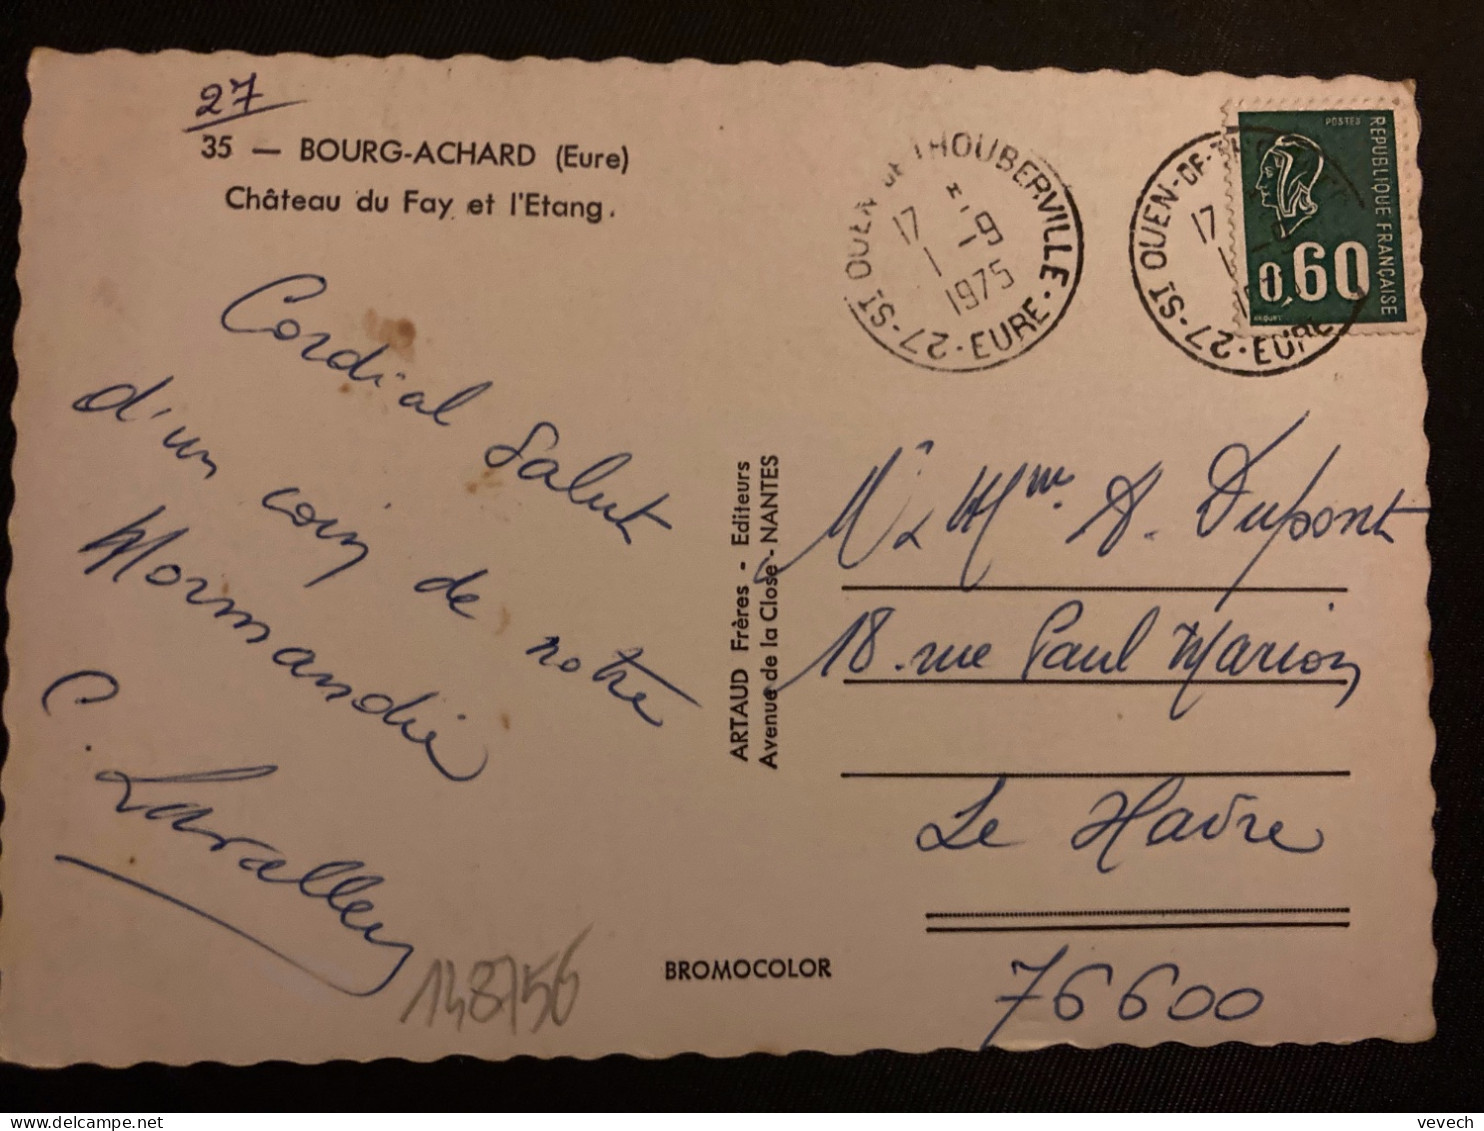 27
35 — BOURG-ACHARD (Eure)
Château du Fay et l'Etang.
Cordial Salut
d'un coin de notre
Normandie
C. Lavallery
148756
ARTAUD Frères - Editeurs
Avenue de la Close - NANTES
BROMOCOLOR
27-ST OUEN-DE-THOUBERVILLE-EURE
17 -9
1975
27-ST OUEN-DE-TH
EURE
17
POSTES
REPUBLIQUE FRANÇAISE
0,60
Mr & Mme A. Dupont
18 rue Paul Marion
Le Havre
76600
vevech